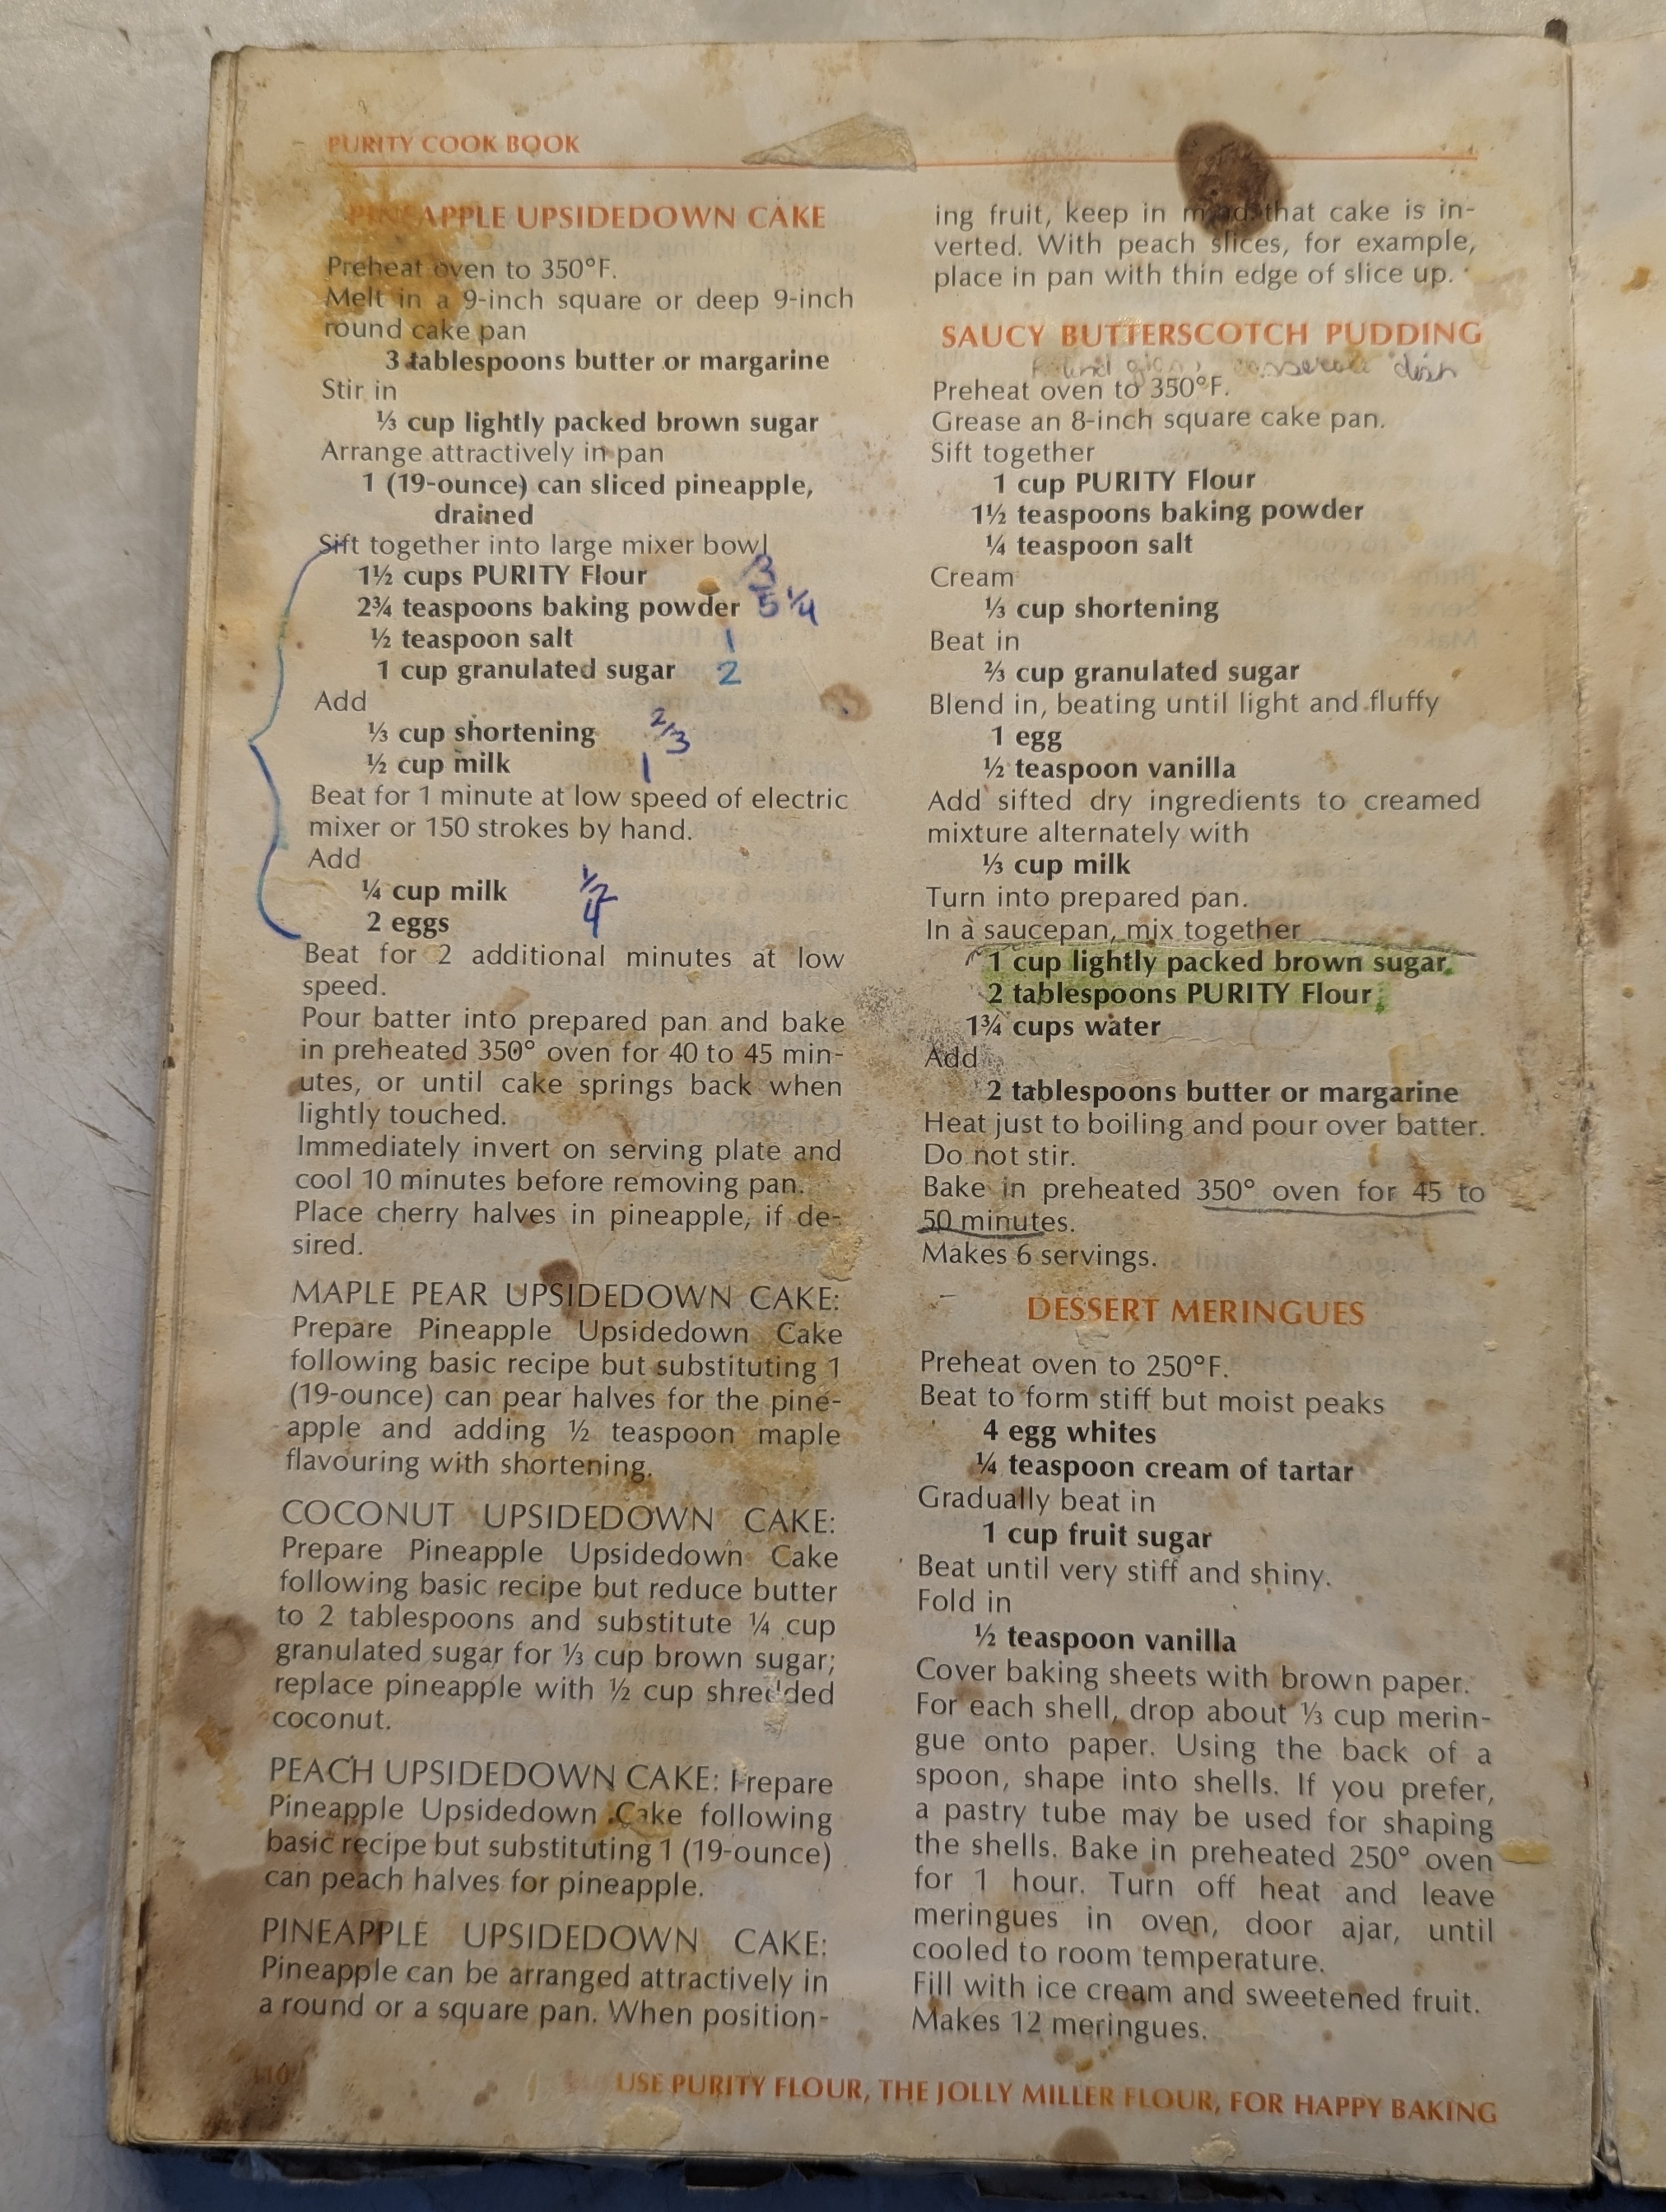 PURITY COOK BOOK
PINEAPPLE UPSIDEDOWN CAKE
Preheat oven to 350°F.
Melt in a 9-inch square or deep 9-inch
round cake pan
3 tablespoons butter or margarine
Stir in
⅓ cup lightly packed brown sugar
Arrange attractively in pan
1 (19-ounce) can sliced pineapple,
drained
Sift together into large mixer bowl
1½ cups PURITY Flour 3
2¾ teaspoons baking powder 5 ¼
½ teaspoon salt 1
1 cup granulated sugar 2
Add
⅓ cup shortening 2/3
½ cup milk 1
Beat for 1 minute at low speed of electric
mixer or 150 strokes by hand.
Add
¼ cup milk ½
2 eggs 4
Beat for 2 additional minutes at low
speed.
Pour batter into prepared pan and bake
in preheated 350° oven for 40 to 45 min-
utes, or until cake springs back when
lightly touched.
Immediately invert on serving plate and
cool 10 minutes before removing pan.
Place cherry halves in pineapple, if de-
sired.
MAPLE PEAR UPSIDEDOWN CAKE:
Prepare Pineapple Upsidedown Cake
following basic recipe but substituting 1
(19-ounce) can pear halves for the pine-
apple and adding ½ teaspoon maple
flavouring with shortening.
COCONUT UPSIDEDOWN CAKE:
Prepare Pineapple Upsidedown Cake
following basic recipe but reduce butter
to 2 tablespoons and substitute ¼ cup
granulated sugar for ⅓ cup brown sugar;
replace pineapple with ½ cup shredded
coconut.
PEACH UPSIDEDOWN CAKE: Prepare
Pineapple Upsidedown Cake following
basic recipe but substituting 1 (19-ounce)
can peach halves for pineapple.
PINEAPPLE UPSIDEDOWN CAKE:
Pineapple can be arranged attractively in
a round or a square pan. When position-
ing fruit, keep in mind that cake is in-
verted. With peach slices, for example,
place in pan with thin edge of slice up.
SAUCY BUTTERSCOTCH PUDDING
casserole dish
Preheat oven to 350°F.
Grease an 8-inch square cake pan.
Sift together
1 cup PURITY Flour
1½ teaspoons baking powder
¼ teaspoon salt
Cream
⅓ cup shortening
Beat in
⅔ cup granulated sugar
Blend in, beating until light and fluffy
1 egg
½ teaspoon vanilla
Add sifted dry ingredients to creamed
mixture alternately with
⅓ cup milk
Turn into prepared pan.
In a saucepan, mix together
1 cup lightly packed brown sugar
2 tablespoons PURITY Flour
1¾ cups water
Add
2 tablespoons butter or margarine
Heat just to boiling and pour over batter.
Do not stir.
Bake in preheated 350° oven for 45 to
50 minutes.
Makes 6 servings.
DESSERT MERINGUES
Preheat oven to 250°F.
Beat to form stiff but moist peaks
4 egg whites
¼ teaspoon cream of tartar
Gradually beat in
1 cup fruit sugar
Beat until very stiff and shiny.
Fold in
½ teaspoon vanilla
Cover baking sheets with brown paper.
For each shell, drop about ⅓ cup merin-
gue onto paper. Using the back of a
spoon, shape into shells. If you prefer,
a pastry tube may be used for shaping
the shells. Bake in preheated 250° oven
for 1 hour. Turn off heat and leave
meringues in oven, door ajar, until
cooled to room temperature.
Fill with ice cream and sweetened fruit.
Makes 12 meringues.
USE PURITY FLOUR, THE JOLLY MILLER FLOUR, FOR HAPPY BAKING